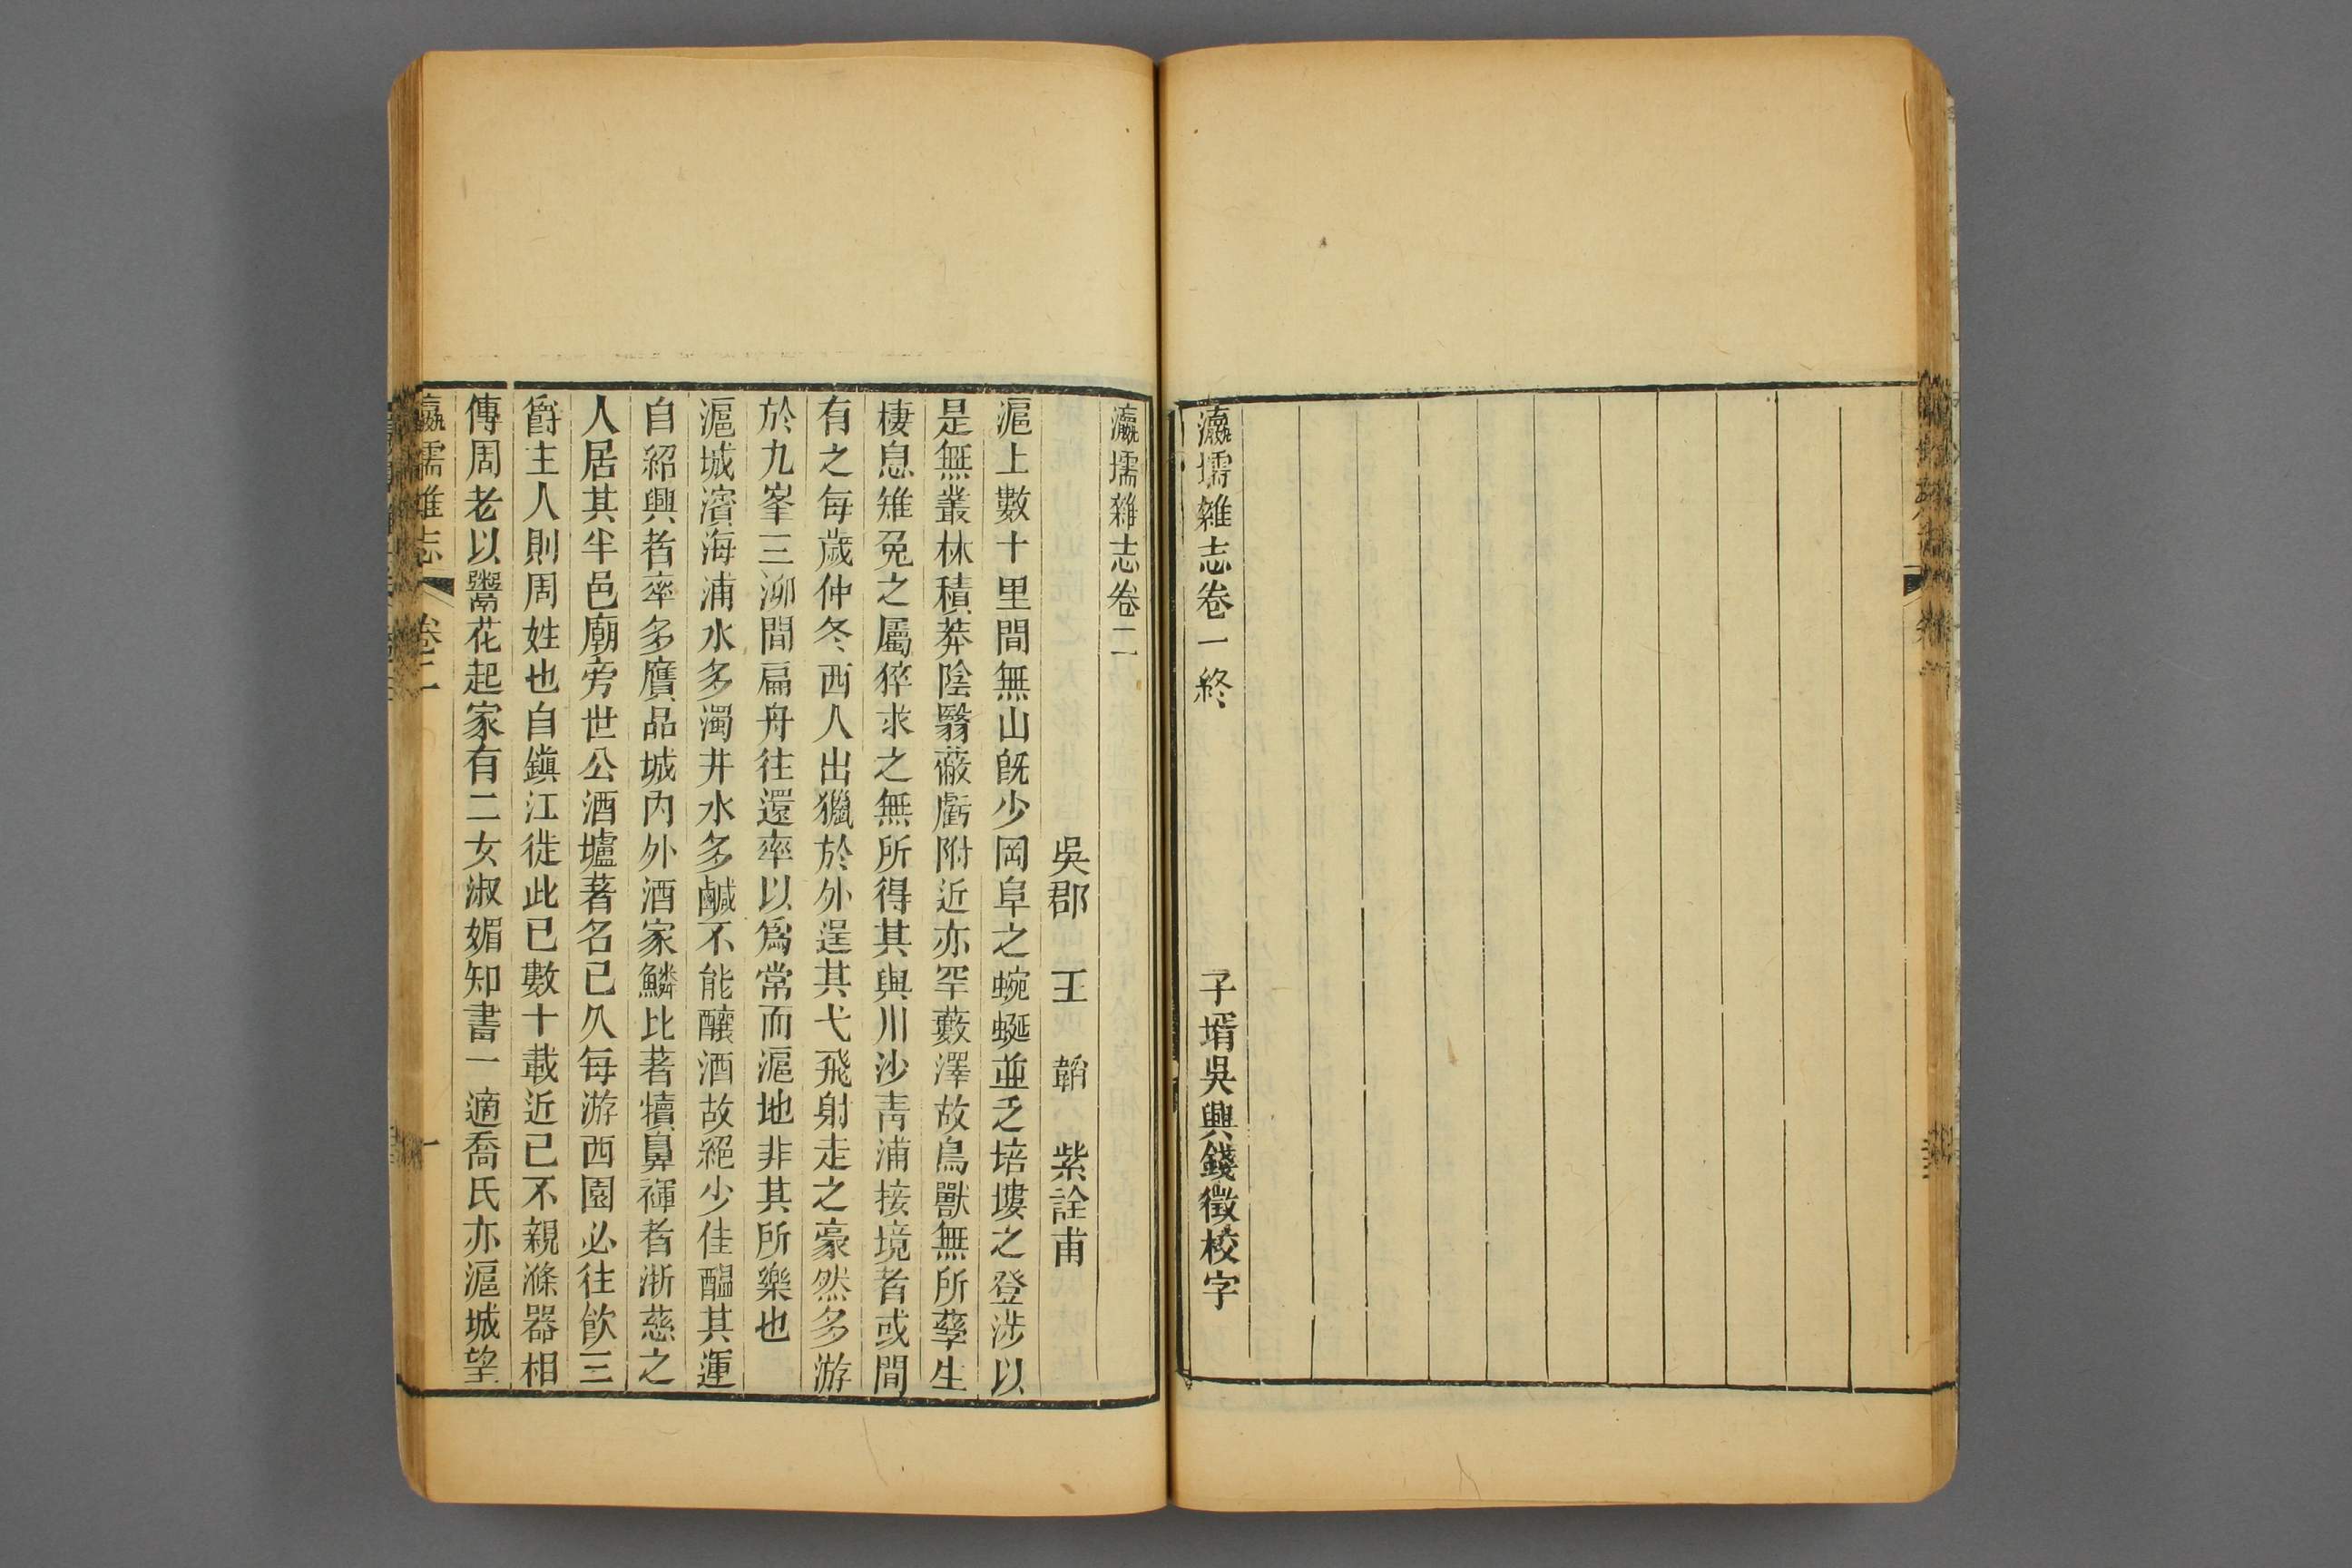 瀛壖雜志卷一終　子壻吳興錢徵校字
瀛壖雜志卷二
吳郡　王　韜　紫詮甫
滬上數十里間無山旣少岡阜之蜿蜒並乏培塿之登涉以
是無叢林積莽陰翳蔽虧附近亦罕藪澤故鳥獸無所孳生
棲息雉兔之屬猝求之無所得其與川沙青浦接境者或間
有之每歲仲冬西人出獵於外逞其弋飛射走之豪然多游
於九峯三泖間扁舟往還率以爲常而滬地非其所樂也
滬城濱海浦水多濁井水多鹹不能釀酒故絕少佳醞其運
自紹興者率多贋品城內外酒家鱗比著犢鼻褌者浙慈之
人居其半邑廟旁世公酒壚著名已久每游西園必往飲三
爵主人則周姓也自鎭江徙此已數十載近已不親滌器相
傳周老以鬻花起家有二女淑媚知書一適喬氏亦滬城望
瀛壖雜志　卷二　一